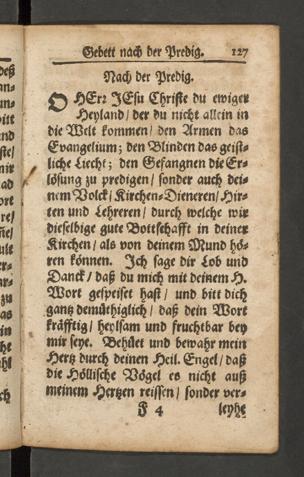 Gebett nach der Predig. 127
Nach der Predig.
O HErr JEsu Christe du ewiger
Heyland / der du nicht allein in
die Welt kommen / den Armen das
Evangelium; den Blinden das geist-
liche Liecht; den Gefangnen die Er-
lösung zu predigen / sonder auch dei-
nem Volck / Kirchen-Dieneren / Hir-
ten und Lehreren / durch welche wir
dieselbige gute Bottschafft in deiner
Kirchen / als von deinem Mund hö-
ren können. Ich sage dir Lob und
Danck / daß du mich mit deinem H.
Wort gespeiset hast / und bitt dich
gantz demüthiglich / daß dein Wort
kräfftig / heylsam und fruchtbar bey
mir seye. Behüet und bewahr mein
Hertz durch deinen Heil. Engel / daß
die Höllische Vögel es nicht auß
meinem Hertzen reissen / sonder ver-
F 4 leyhe